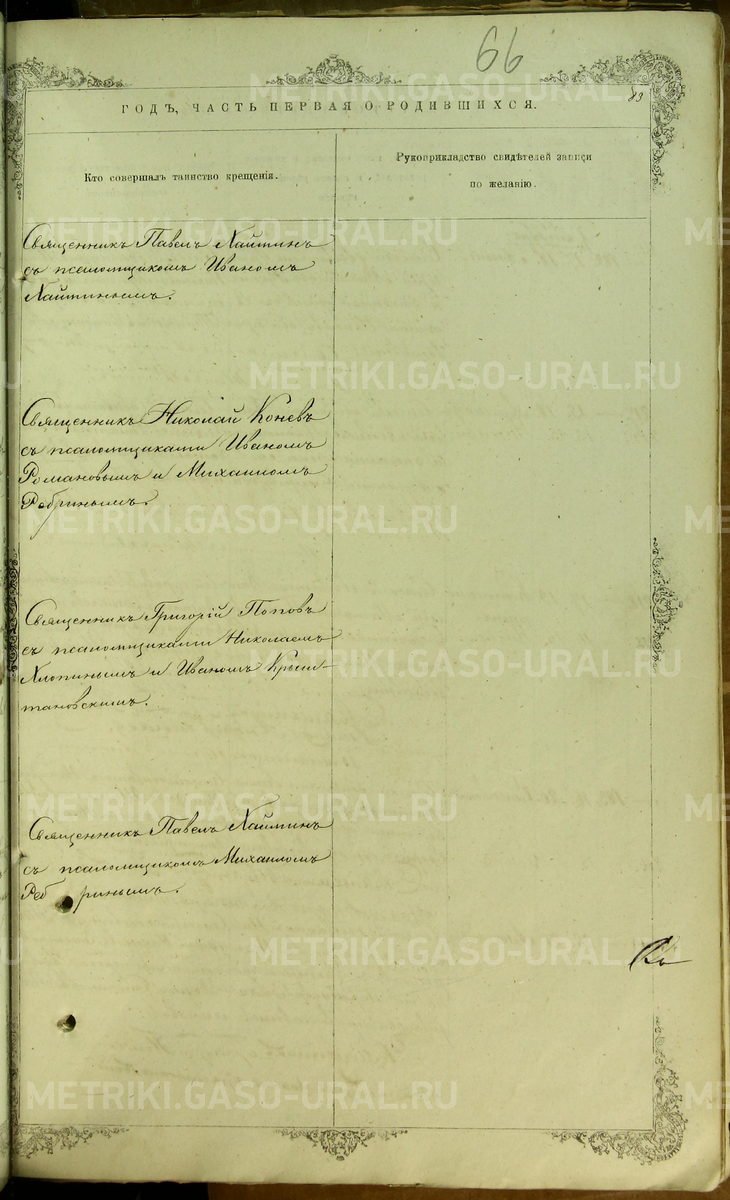 66
83
ГОДЪ, ЧАСТЬ ПЕРВАЯ О РОДИВШИХСЯ.
Кто совершалъ таинство крещенія.
Рукоприкладство свидѣтелей записи
по желанію.
Священникъ Павелъ Хаймин
съ псаломщикомъ Иваномъ
Хайминымъ.
Священникъ Николай Коневъ
съ псаломщиками Иваномъ
Романовымъ и Михаиломъ
Ребринымъ.
Священникъ Григорій Поповъ
съ псаломщиками Николаемъ
Хлопинымъ и Иваномъ Крыш-
тановскимъ.
Священникъ Павелъ Хайминъ
съ псаломщикомъ Михаиломъ
Реб ринымъ.
METRIKI.GASO-URAL.RU